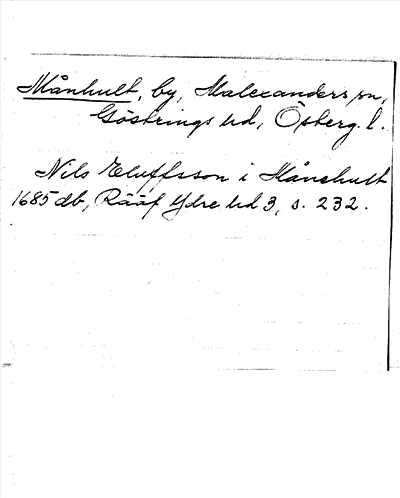 Månhult, by, Malexanders sn,
Göstrings hd, Österg. l.
Nils Eluffsson i Månehult
1685 db, Rääf Ydre hd 3, s. 232.